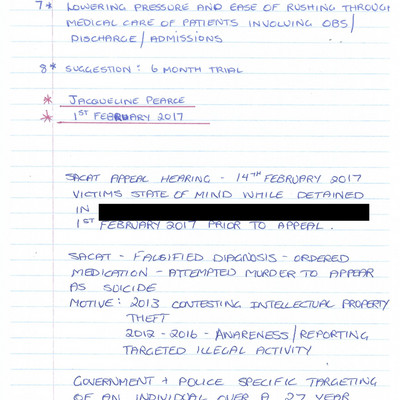 7* LOWERING PRESSURE AND EASE OF RUSHING THROUGH
MEDICAL CARE OF PATIENTS INVOLVING OBS/
DISCHARGE/ADMISSIONS
8* SUGGESTION: 6 MONTH TRIAL
* JACQUELINE PEARCE
* 1ST FEBRUARY 2017
SACAT APPEAL HEARING - 14TH FEBRUARY 2017
VICTIMS STATE OF MIND WHILE DETAINED
IN
1ST FEBRUARY 2017 PRIOR TO APPEAL.
SACAT - FALSIFIED DIAGNOSIS - ORDERED
MEDICATION - ATTEMPTED MURDER TO APPEAR
AS SUICIDE
MOTIVE: 2013 CONTESTING INTELLECTUAL PROPERTY
THEFT
2012 - 2016 - AWARENESS/REPORTING
TARGETED ILLEGAL ACTIVITY
GOVERNMENT + POLICE SPECIFIC TARGETING
OF AN INDIVIDUAL OVER A 27 YEAR